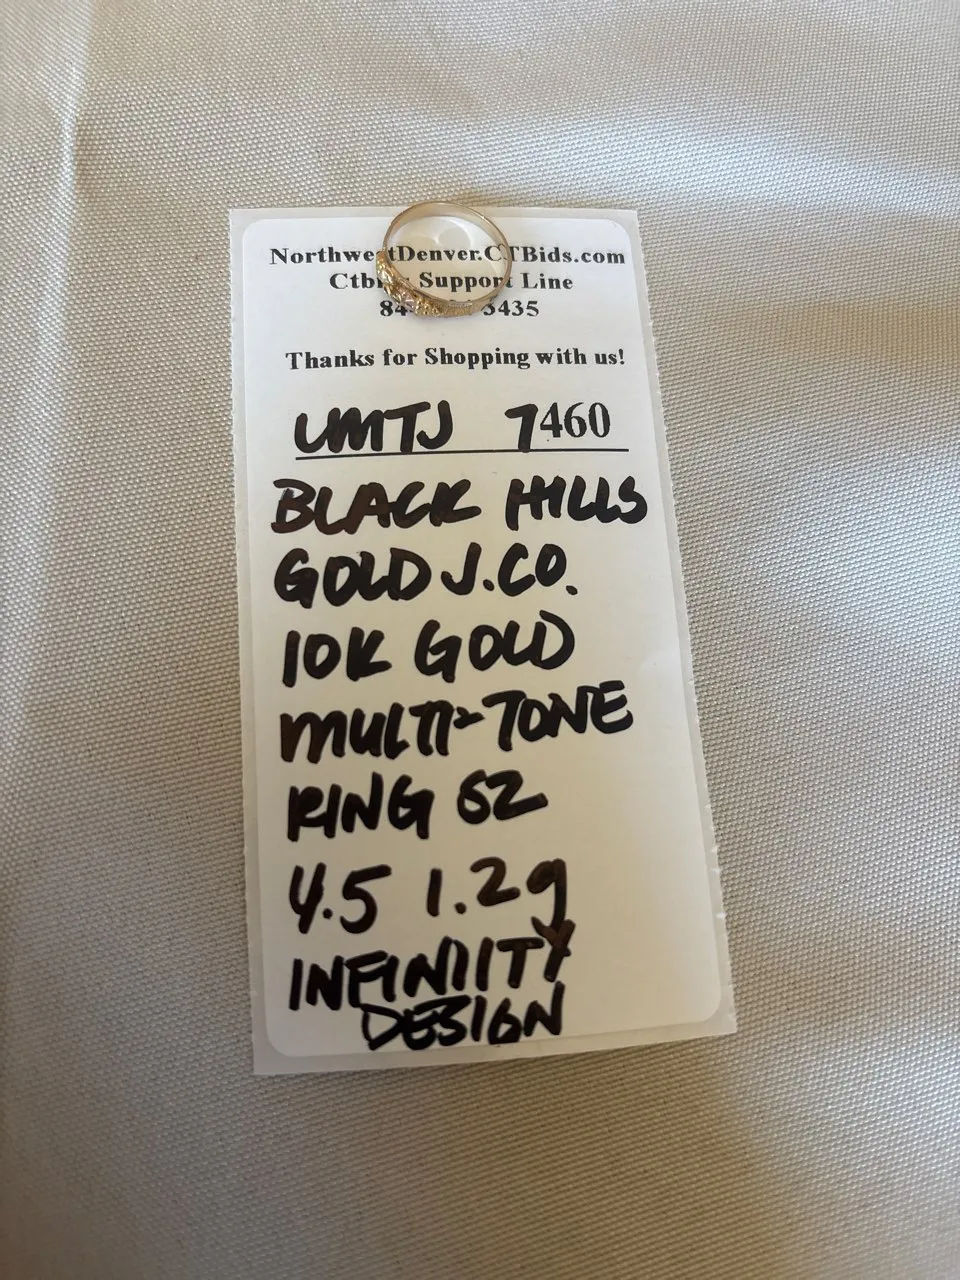 NorthwestDenver.CTBids.com
Support Line
5435
Thanks for Shopping with us!
UMTJ 7460
BLACK HILLS
GOLD J.CO.
10K GOLD
MULTI-TONE
RING SZ
4.5 1.2g
INFINIITY
DESIGN